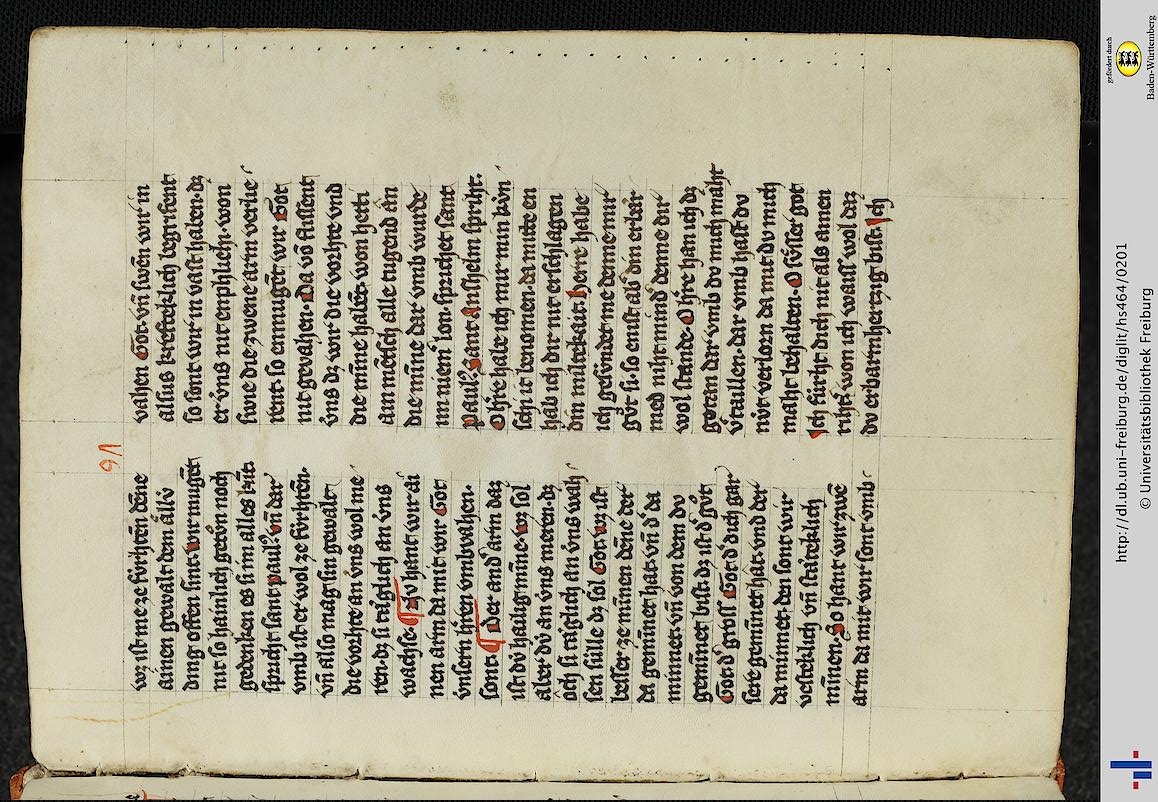 wz ist me ze fv́rhten deñe
ainen gewalt dem állv́
ding offen sint. wir mugēt
nit so hainlich getv̊n noch
gedenken es si im alles kūt.
spricht sant paul? vn̄ dar
vmb ist er wol ze fv́rhten.
vn̄ also mag sin gewalt
die vorhte an v́ns wol me
ren. dz si táglich an v́ns
wachse. Nv hant wir ai
nen arm da mit wir Got
vnsern hr̄ren vmbvahen
sont. Der ander arm daz
ist dv́ hailig min̄e. wz sol
aber dv́ an v́ns meren. dz
och si táglich an v́ns wahs
sen súlle dz sol Got. wz ist
besser ze min̄en deñe der
da gemin̄et hat. vn̄ d' da
minnet. vn̄ von dem dv
gemin̄et bist. dz ist d' gv̊t
Got. d' gross Got. d' dich gar
sere geminnet hat. vnd der
da minnet. den sont wir
vesteklich vn̄ starcklich
min̄en. So hant wir zwē
arm da mit wir sont vmb
vahen Got. vn̄ swen wir in
alsus krefteklich begrifent
so sont wir in vast haben. dz
er v́ns nit enphliehe. won
swie die zwene arm verlie
rent. so enmugēt wir Got
nit gevahen. Da vō flissent
v́ns dz wir die vorhte vnd
die min̄e haltēt. won hetti
ain mētsch alle tugend ān
die min̄e dar vmb wurde
im niem̄ lon. sprichet sant
paul? Sant Anshelm spricht.
O hr̄re hab ich mir min kún
sch it benomen. da mitte en
hab ich dir nit erschlagen
din miltekait. herre habe
ich gesv́ndet me denne mir
gv̊t si. so enist ab' din erbār
med niht mind' denne dir
wol stande. O hr̄re han ich dz
getan dar vmb dv mich maht
v'taillen. dar vmb hast dv
nv́t verlorn da mit dv mich
maht behalten. O sv́sser got
Ich fúrht dich nit als ainen
riht' won ich waiss wol daz
dv erbarmhertzig bist. Ich
VI
http://dl.ub.uni-freiburg.de/diglit/hs464/0201
© Universitätsbibliothek Freiburg
gefördert durch
Baden-Württemberg